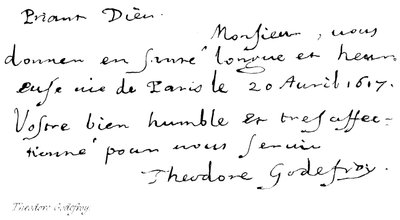 Priant Dieu.
Monsieur, vous
donner en santé longue et heur
euse vie de Paris le 20 Avril 1617.
Vostre bien humble et tresaffec-
tionné pour vous servir
Theodore Godefroy.
Theodore Godefroy